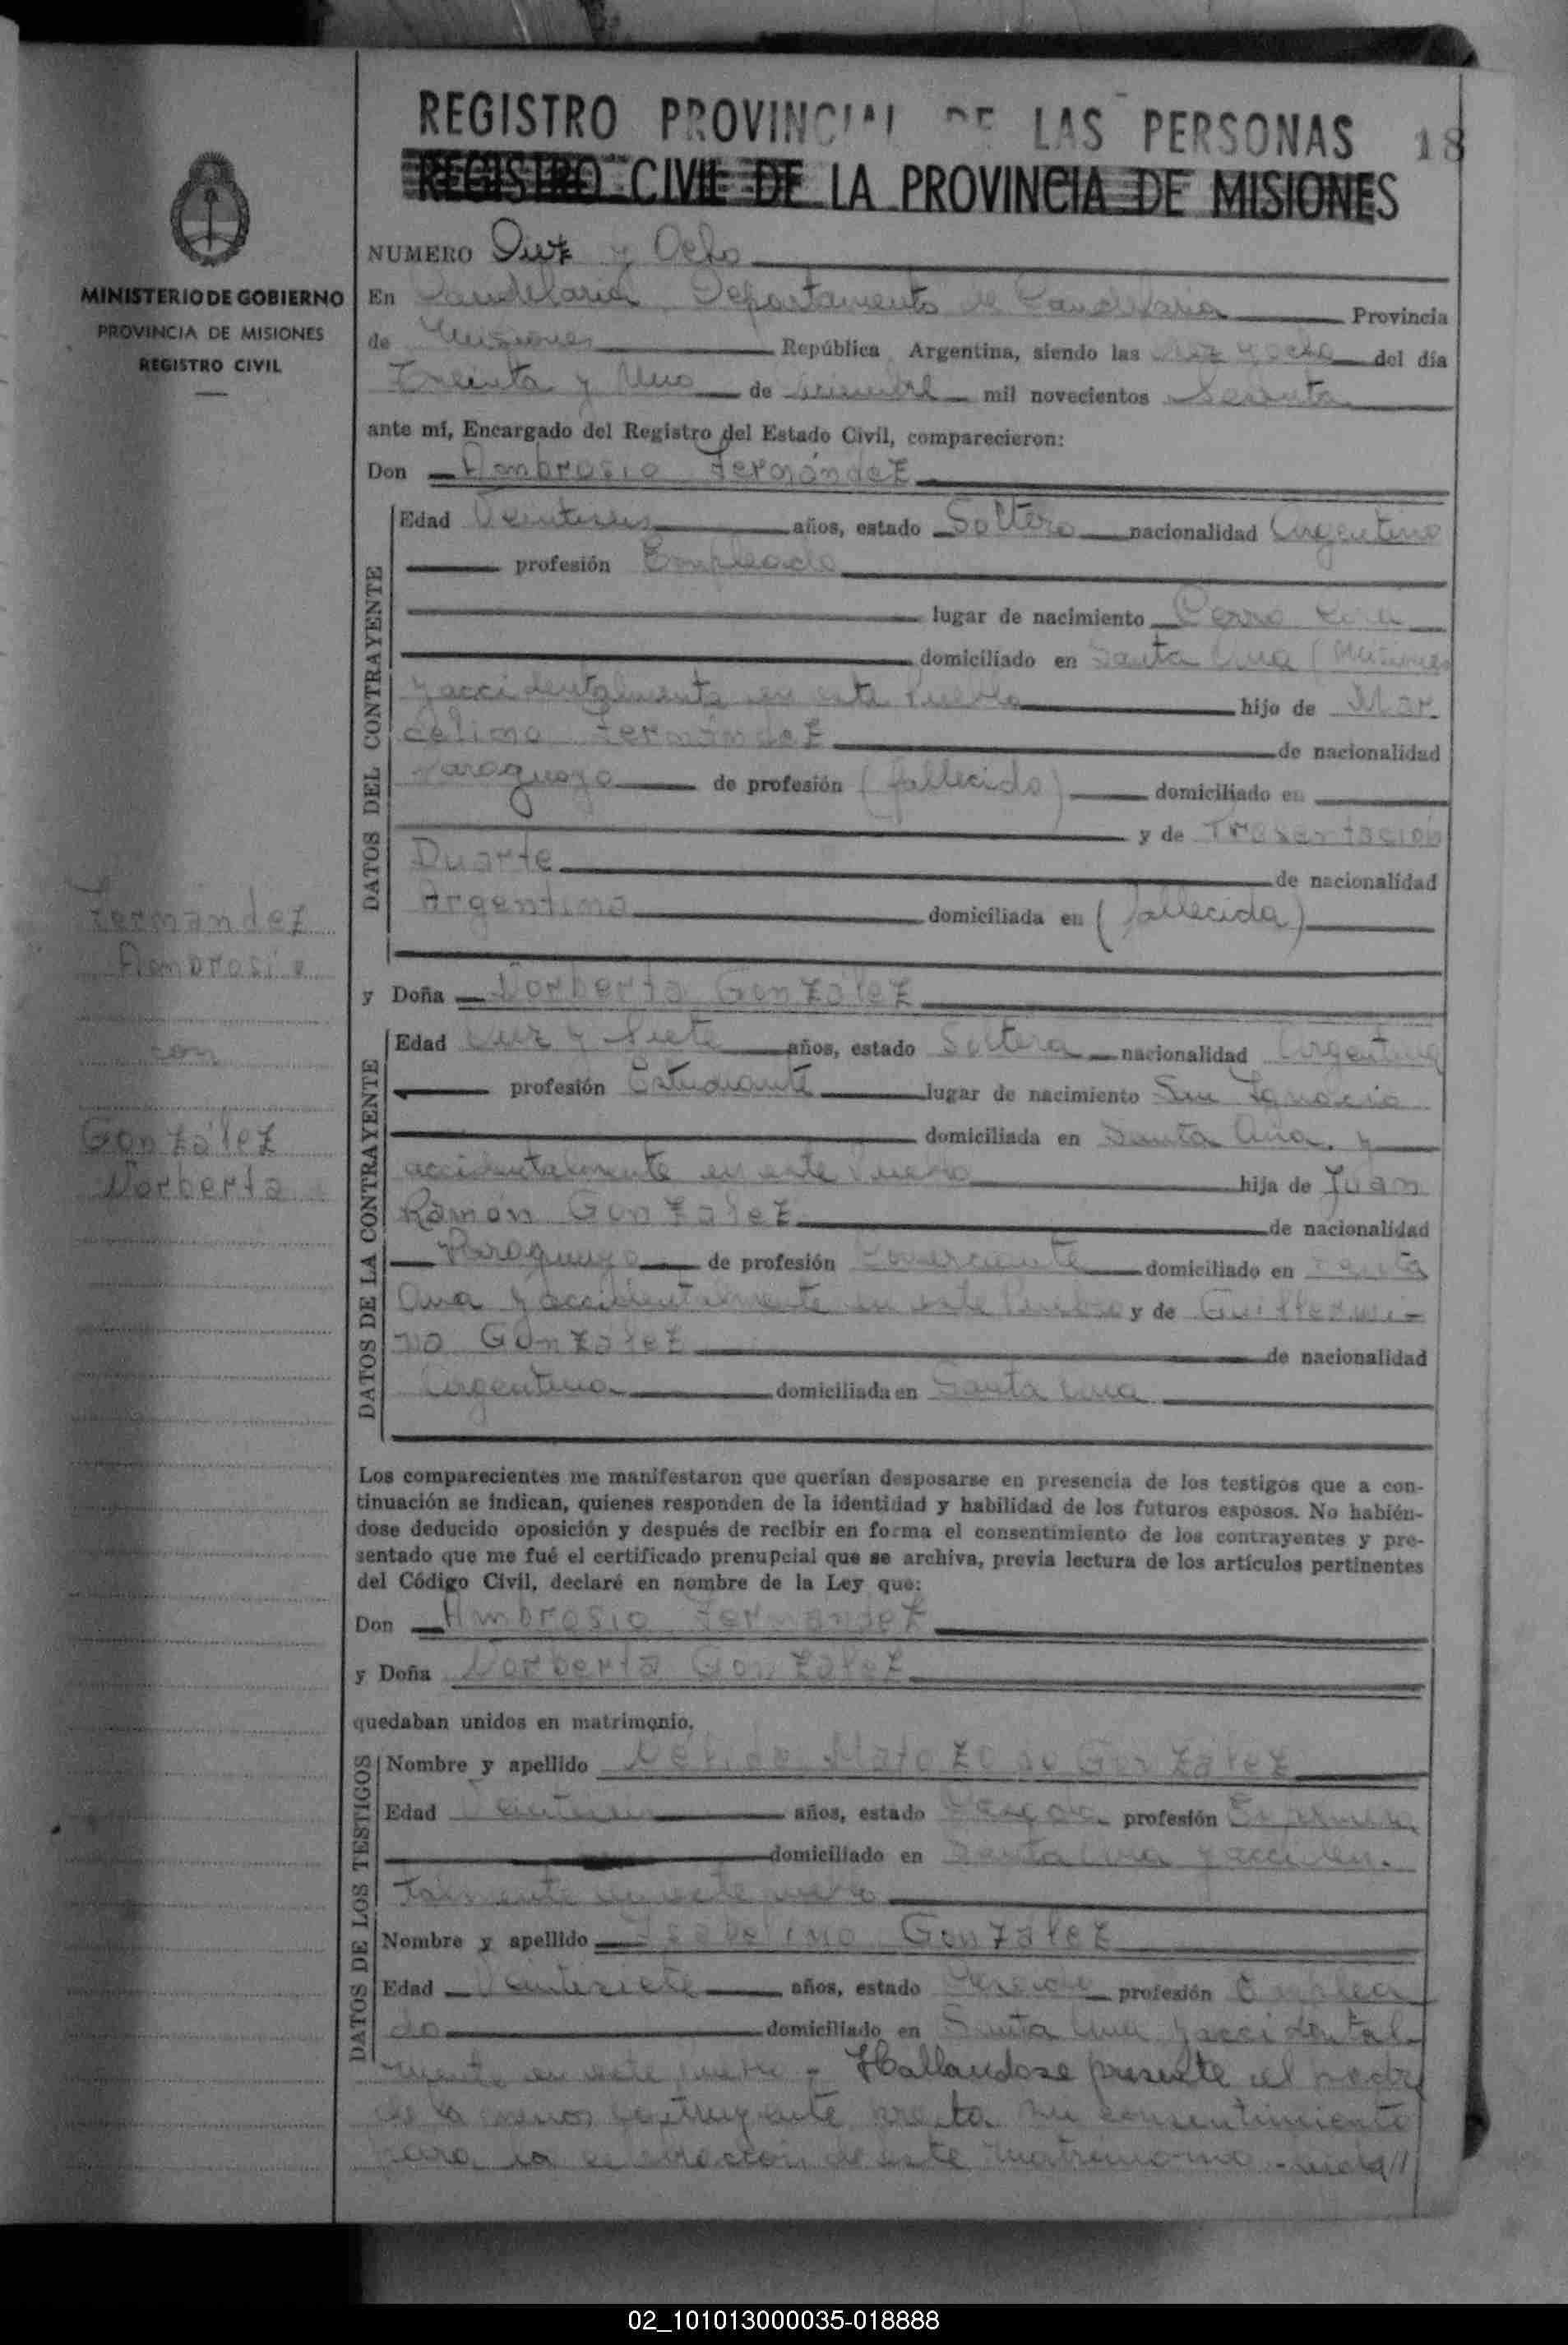 REGISTRO PROVINCIAL DE LAS PERSONAS 18
REGISTRO CIVIL DE LA PROVINCIA DE MISIONES
MINISTERIO DE GOBIERNO
PROVINCIA DE MISIONES
REGISTRO CIVIL
Fernández
Ambrosio
con
González
Norberta
NUMERO Diez y Ocho
En Candelaria Departamento de Candelaria Provincia
de Misiones República Argentina, siendo las diez y ocho del día
Treinta y Uno de Diciembre mil novecientos Sesenta
ante mí, Encargado del Registro del Estado Civil, comparecieron:
Don Ambrosio Fernández
DATOS DEL CONTRAYENTE
Edad Veintiseis años, estado Soltero nacionalidad Argentino
profesión Empleado
lugar de nacimiento Cerro Corá
domiciliado en Santa Ana (Misiones
y accidentalmente en este Pueblo hijo de Mar
celino Fernández de nacionalidad
Paraguayo de profesión (fallecido) domiciliado en
y de Presentación
Duarte de nacionalidad
Argentina domiciliada en (fallecida)
y Doña Norberta González
DATOS DE LA CONTRAYENTE
Edad Diez y Siete años, estado Soltera nacionalidad Argentina
profesión Estudiante lugar de nacimiento San Ignacio
domiciliada en Santa Ana. y
accidentalmente en este Pueblo hija de Juan
Ramón González de nacionalidad
Paraguayo de profesión Comerciante domiciliado en Santa
Ana y accidentalmente en este Pueblo y de Guillermi-
na González de nacionalidad
Argentina domiciliada en Santa Ana
Los comparecientes me manifestaron que querían desposarse en presencia de los testigos que a con-
tinuación se indican, quienes responden de la identidad y habilidad de los futuros esposos. No habién-
dose deducido oposición y después de recibir en forma el consentimiento de los contrayentes y pre-
sentado que me fué el certificado prenupcial que se archiva, previa lectura de los artículos pertinentes
del Código Civil, declaré en nombre de la Ley que:
Don Ambrosio Fernández
y Doña Norberta González
quedaban unidos en matrimonio.
DATOS DE LOS TESTIGOS
Nombre y apellido Nélida Matozo de González
Edad años, estado Casada profesión
domiciliado en Santa Ana y acciden-
talmente en este pueblo
Nombre y apellido Isabelino González
Edad Veintisiete años, estado Casado profesión Emplea
do domiciliado en Santa Ana y accidental-
mente en este pueblo - Hallandose presente el padre
de la menor contrayente presta su consentimiento
para la celebración de este matrimonio -
02_101013000035-018888